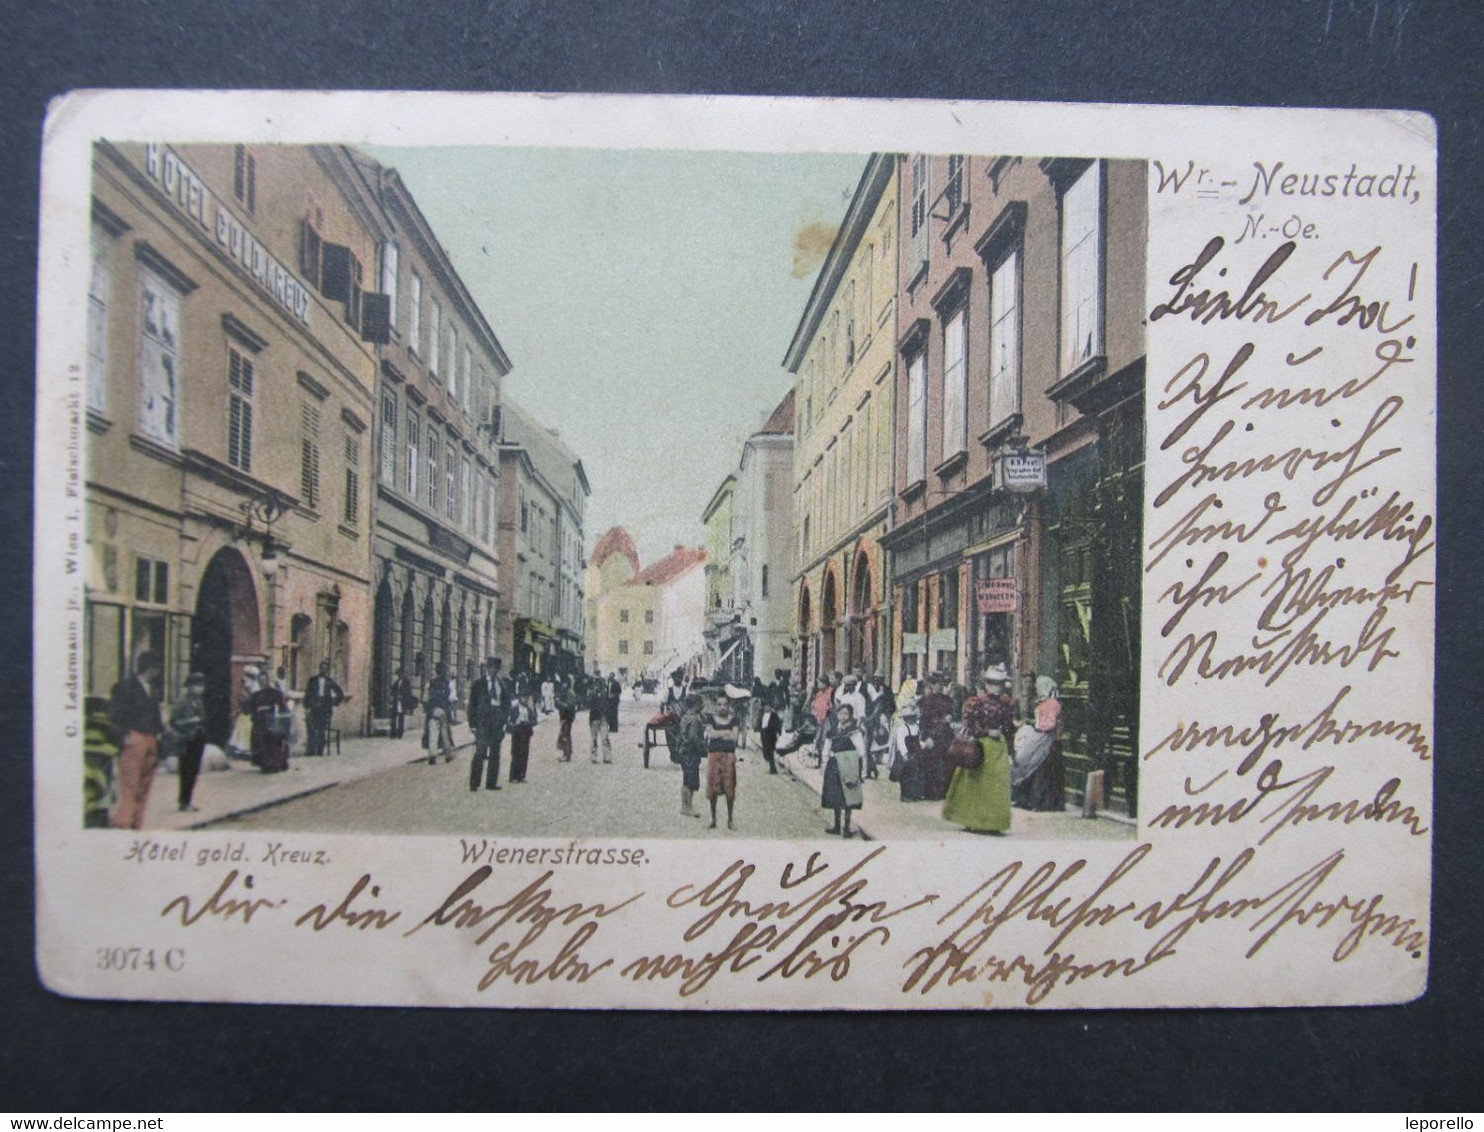 Wr.-Neustadt,
N.-Oe.
Liebe Isa!
Ich und
Heinrich
sind glücklich
in Wiener
Neustadt
angekommen
und senden
Dir die besten Grüße schlafe ohne sorgen.
Lebe wohl bis Morgen
HOTEL GOLD. KREUZ
Hôtel gold. Kreuz.
Wienerstrasse.
3074 C
C. Ledermann jr., Wien I, Fleischmarkt 12
leporello